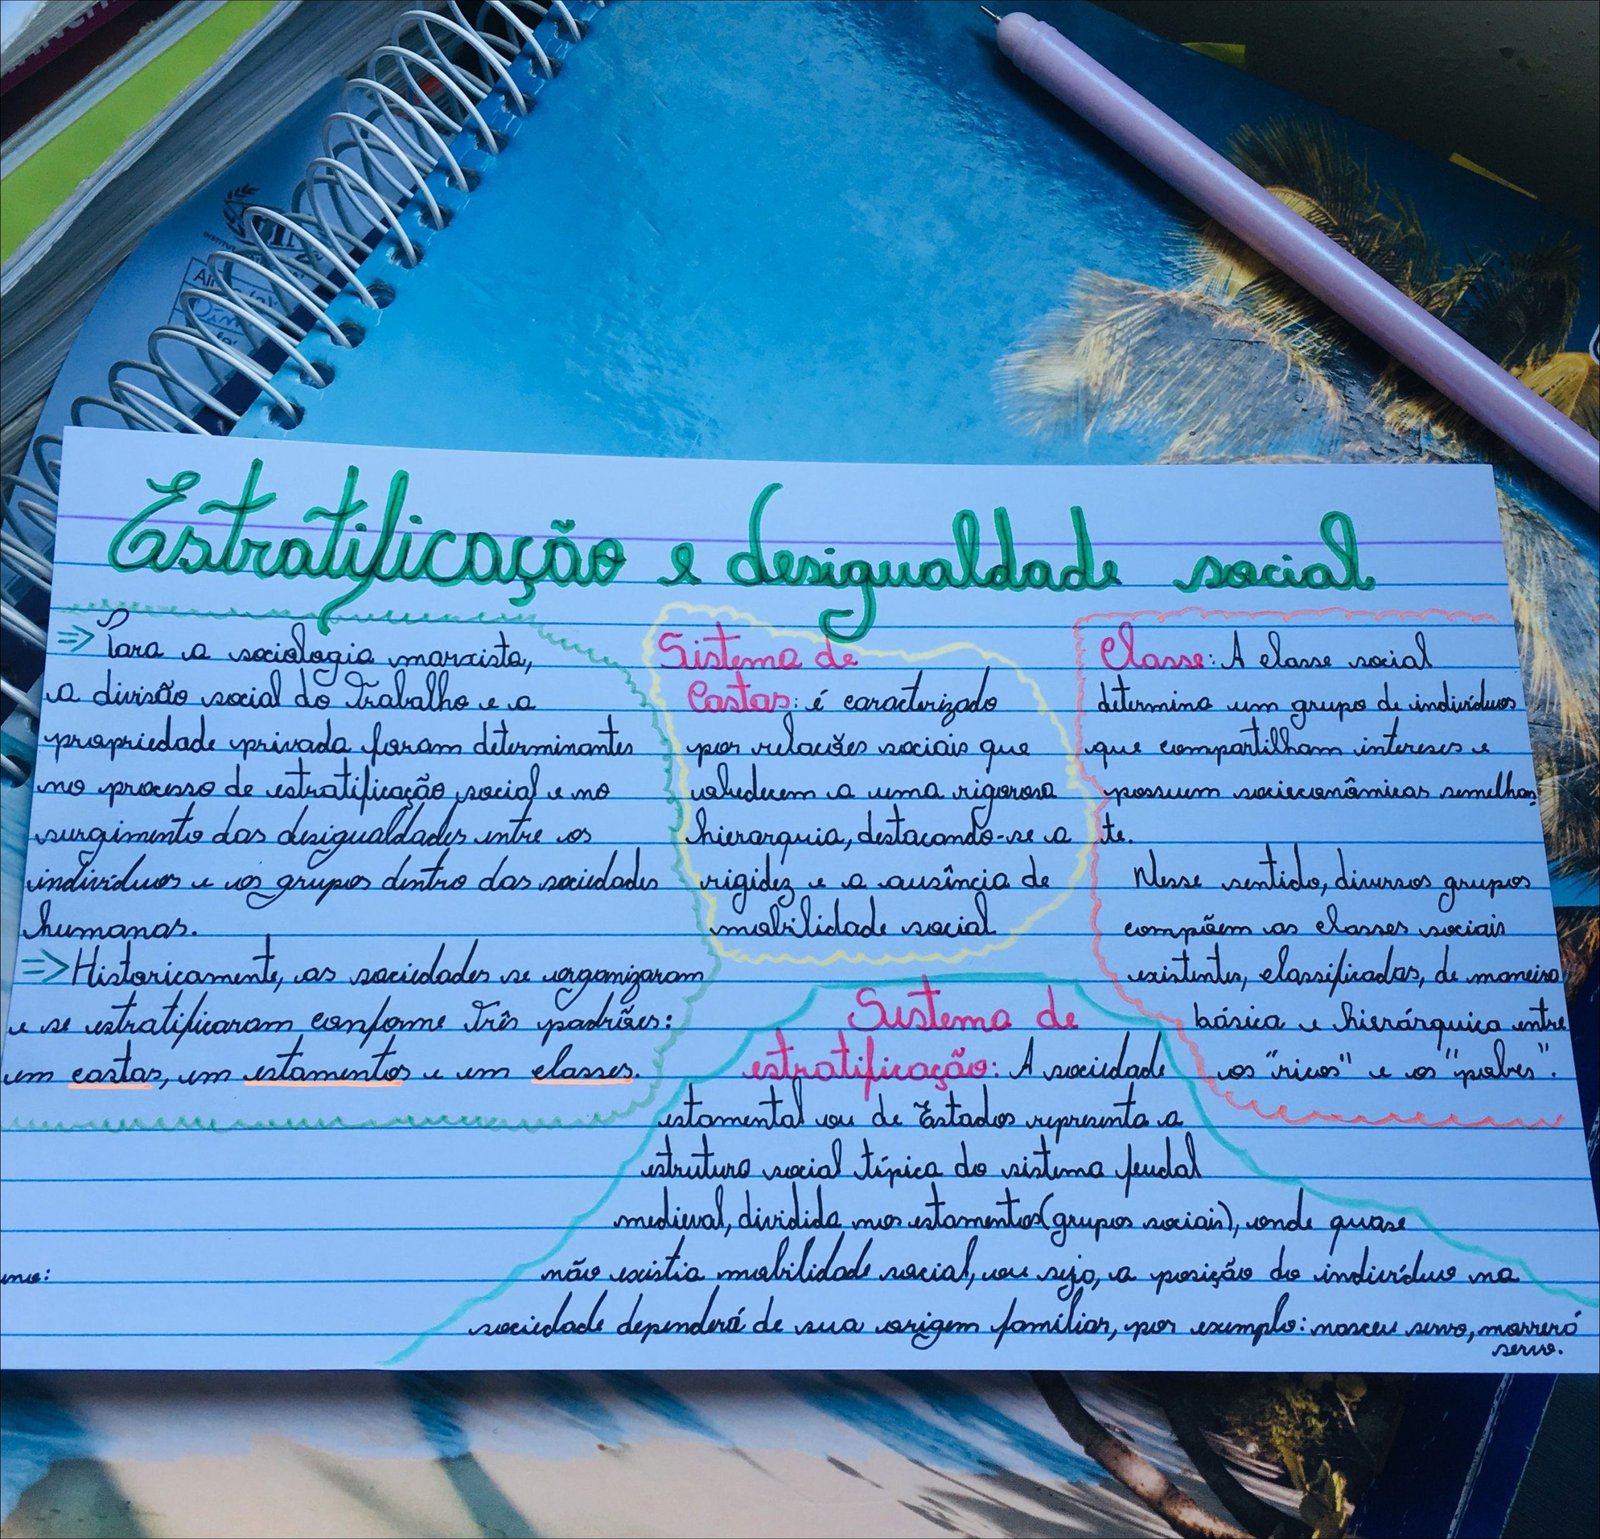 Estratificação e desigualdade social
⇒ Para a sociologia marxista,
a divisão social do Trabalho e a
propriedade privada foram determinantes
no processo de estratificação social e no
surgimento das desigualdades entre os
indivíduos e os grupos dentro das sociedades
humanas.
⇒ Historicamente, as sociedades se organizaram
e se estratificaram conforme três padrões:
em castas, em estamentos e em classes.
Sistema de
Castas: é caracterizado
por relações sociais que
obedecem a uma rigorosa
hierarquia, destacando-se a
rigidez e a ausência de
mobilidade social
Classe: A classe social
determina um grupo de indivíduos
que compartilham interesses e
possuem socieconômicas semelhan
te.
Nesse sentido, diversos grupos
compõem as classes sociais
existentes, classificadas, de maneira
básica e hierárquica entre
os "ricos" e os "pobres".
Sistema de
estratificação: A sociedade
estamental ou de Estados representa a
estrutura social típica do sistema feudal
medieval, dividida nos estamentos (grupos sociais), onde quase
não existia mobilidade social, ou seja, a posição do indivíduo na
sociedade dependerá de sua origem familiar, por exemplo: nasceu servo, morrerá
servo.